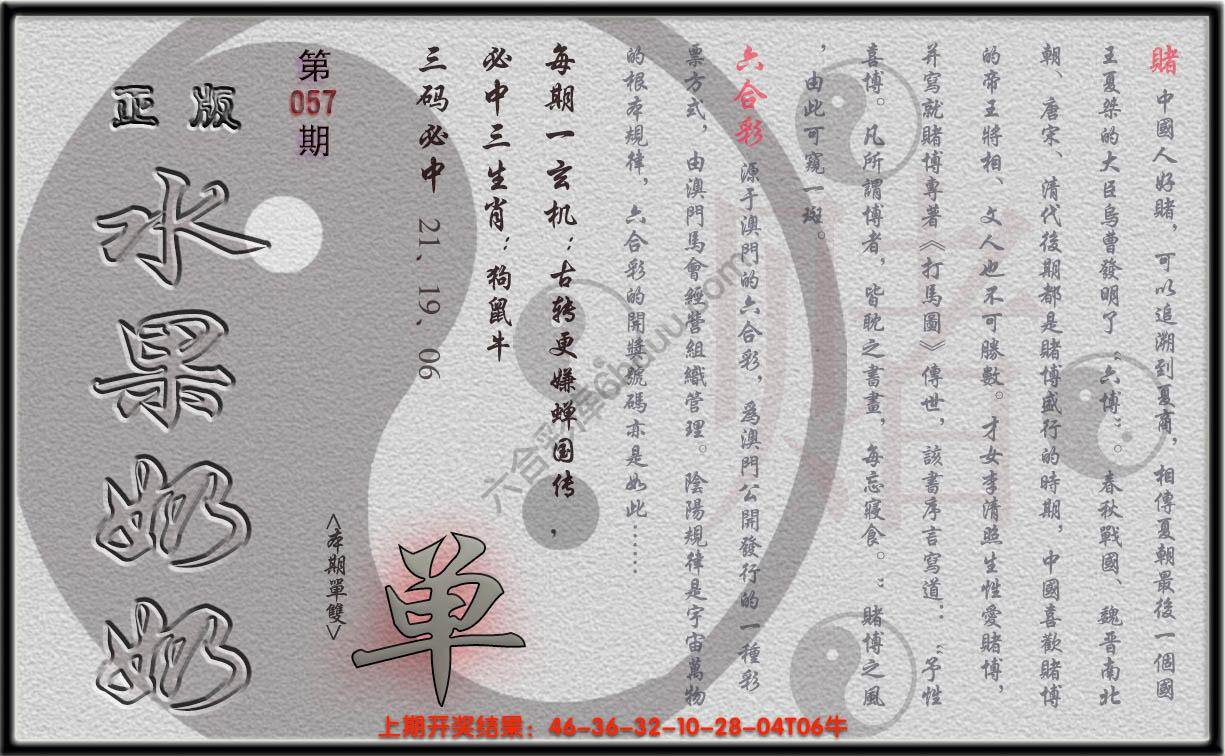 賭 中國人好賭，可以追溯到夏商，相傳夏朝最後一個國
王夏桀的大臣烏曹發明了“六博”。春秋戰國、魏晋南北
朝、唐宋、清代後期都是賭博盛行的時期，中國喜歡賭博
的帝王將相、文人也不可勝數。才女李清照生性愛賭博，
并寫就賭博專著《打馬圖》傳世，該書序言寫道：“予性
喜博。凡所謂博者，皆耽之晝畫，每忘寢食。”賭博之風
，由此可窺一斑。
六合彩 源于澳門的六合彩，爲澳門公開發行的一種彩
票方式，由澳門馬會經營組織管理。陰陽規律是宇宙萬物
的根本規律，六合彩的開獎號碼亦是如此……
每期一玄机：古转更嫌蝉国传，
必中三生肖：狗鼠牛
三码必中 21、19、06
第
057
期
<本期單雙>
单
正版
水果奶奶
六合彩库6hduu.com
上期开奖结果：46-36-32-10-28-04T06牛